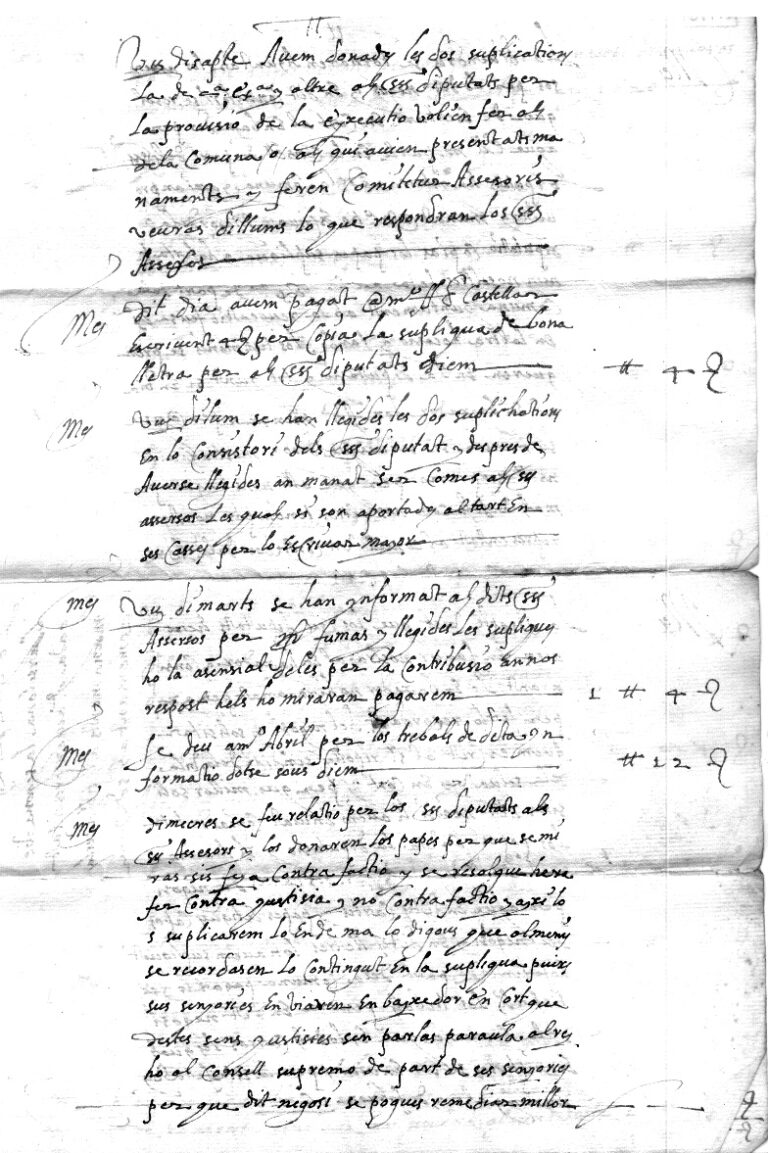 Vuy disapte Avem donady les dos suplications
La de y altre als SSrs diputats per
La provisió de la eyxecutio volien fer als
dela Comuna o als qui avien presentats ma
naments y feren Comitetur Assesoris
veuras dillums lo que respondran los SSrs
Assesos
Mes dit dia avem pagat Castellar
Escrivent 4 per Copia La supliqua de bona
lletra per als SSrs diputats diem # 4
Mes Vuy dilum se han llegides les dos suplichations
En lo Consistori dels SSrs diputat y despres de
Averse llegides an manat ser Comes als Srs
assersos Les quals se son aportady al tart En
ses Casses per lo Escrivar major
Mes Vuy dimarts se han ynformat als dits SSrs
Assersos per fumas y llegides Les supliques
ho la asensial deles per la Contribusió annos
respost hels ho miraran pagarem 1 # 4
Mes Se deu a mo Abril per los trebals de dita yn
formatio dotse sous diem # 12
Mes dimecres se feu relatio per los Srs diputats als
Srs Assesors y los donaren los papes per que se mi
ras sis feya Contra factio y se resolgue here
fer Contra gustisia y no Contra factio y axi lo
s suplicarem lo Ende ma lo digous que almeny
se recordasen Lo Contingut En la supliqua puix
sus senyories Enviaren Enbayxedor En Cort que
destes sens yustisies sen parlas paraula al rey
ho al Consell supremo de part de ses senyories
per que dit negosi se pogues remediar millor